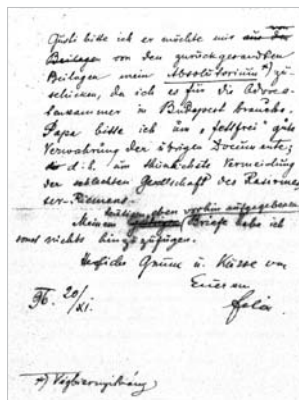 Gusti bitte ich er möchte mir aus den
Beilagen von den zurückgesandten
Beilagen mein Absolutorium *) zu-
schicken, da ich es für die Advoca-
tenkammer in Budapest brauche.
Papa bitte ich um „fettfrei“ gute
Verwahrung der übrigen Documente;
d. h. um thunlichste Vermeidung
der schlechten Gesellschaft des Rasirmes-
ser-Riemens.
Meinem eben vorhin aufgegebenen
Briefe habe ich
sonst nichts hinzuzufügen.
Herzliche Grüsse u. Küsse von
Eurem
Felix
20/XI.
*) Végbizonyítvány